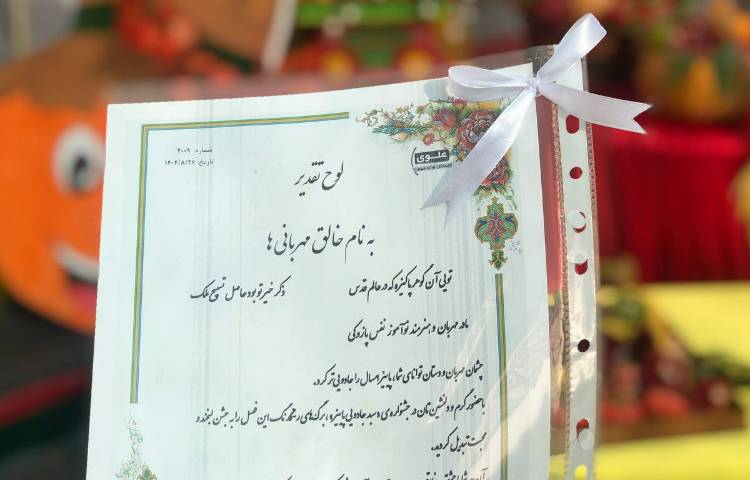 شماره: ۴۰۰۹
تاریخ: ۱۴۰۴/۸/۲۶
علوی
لوح تقدیر
به نام خالق مهربانی ها
تویی آن گوهر پاکیزه که در عالم قدس ذکر خیر تو بود حاصل تسبیح ملک
مادر مهربان و هنرمند نوآموز نفس پازوکی
چشمان مهربان و دستان توانای شما، پاییز امسال را جادویی تر کرد.
با حضور گرم و دلنشین تان در جشنواره ی «سبد جادویی پاییز»، برگ های رنگارنگ این فصل را به جشن لبخند و
محبت تبدیل کردید.